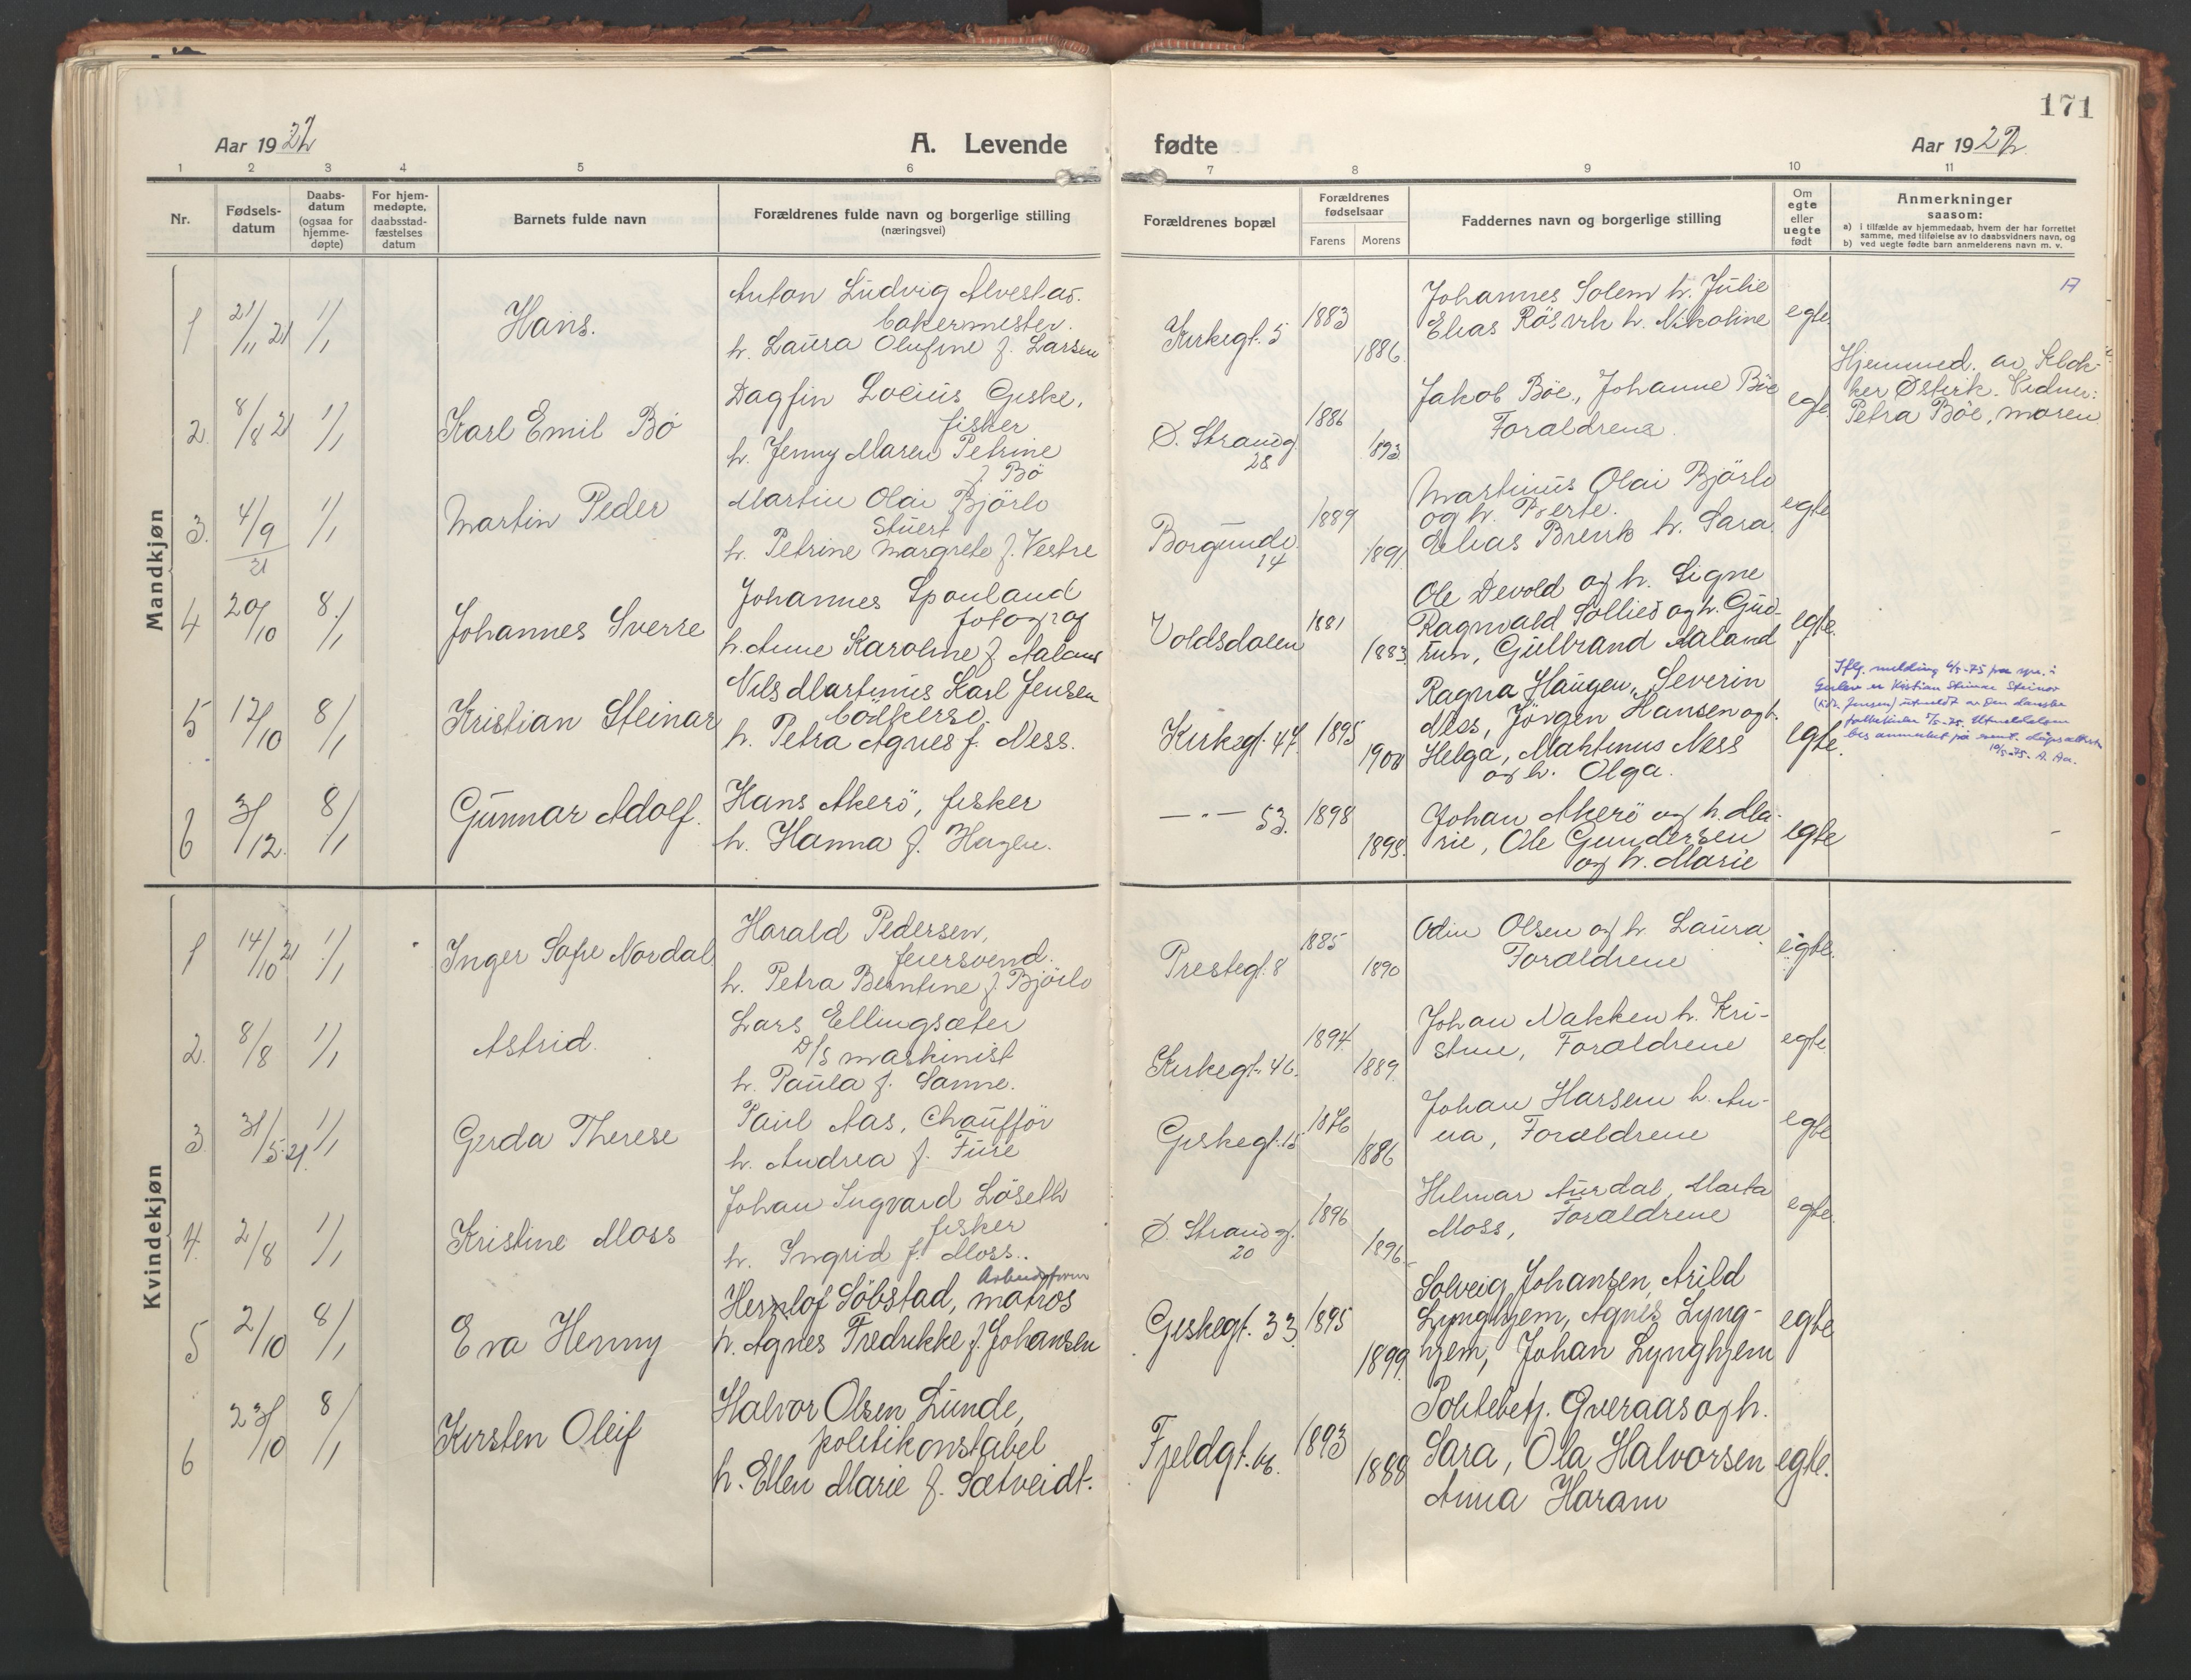 171
Aar 1922
A. Levende fødte
Aar 1922
1 2 3 4 5 6 7 8 9 10 11
Nr.
Fødsels-
datum
Daabs-
datum
(ogsaa for
hjemme-
døpte)
For hjem-
medøpte,
daabsstad-
fæstelses
datum
Barnets fulde navn
Forældrenes fulde navn og borgerlige stilling
(næringsvei)
Forældrenes bopæl
Forældrenes
fødselsaar
Farens Morens
Faddernes navn og borgerlige stilling
Om
egte
eller
uegte
født
Anmerkninger
saasom:
a) i tilfælde av hjemmedaab, hvem der har forrettet
samme, med tilføielse av to daabsvidners navn, og
b) ved uegte fødte barn anmelderens navn m. v.
Mandkjøn
1 21/11 21 1/1
Hans.
Anton Ludvig Alvestad.
bakermester.
h. Laura Olufine f. Larsen
Kirkegt. 5
1883
1886.
Johannes Solem h. Julie
Elias h. Nikoline
egte
2. 8/8 21 1/1
Karl Emil Bö
Dagfin Locius Giske,
fisker
h. Jenny Maren Petrine
f. Bö
Ö. Strandg.
28
1886
1893
Jakob Böe, Johanne Böe
Forældrene.
egte
Hjemmed. av Klok-
ker Østvik. Vidner:
Petra Böe, moren
3. 4/9 21 1/1
Martin Peder
Martin Olai Björlo
Stuert
h. Petrine Margrete f. Vestre
Borgundv.
14
1889
1891
Martinus Olai Björlo
og h. Berte.
Elias h. Sara
egte
4 20/10 8/1
Johannes Sverre
Johannes
fotograf
h. Anne Karoline f. Aaland
Voldsdalen
1881
1883
Ole Devold og h. Signe
Ragnvald Sollied og h. Gud-
run, Gulbrand Aaland
egte.
5 12/10 8/1
Kristian Steinar
Nils Martinus Karl Jensen
bödkersv.
h. Petra Agnes f. Ness.
Kirkegt. 47.
1895
1900
Ragna Haugen, Severin
Ness, Jörgen Hansen og h.
Helga, Mahtinus Ness
og h. Olga.
egte.
Iflg. melding 6/5-75 fra
er Kristian Steinar Steinar
Jensen) utmeldt av den danske
folkekirke 5/5-75. Utmeldelsen
bes anmerket på event.
10/5-75. A. Aa.
6 31/12. 8/1
Gunnar Adolf.
Hans Akerö, fisker
h. Hanna f. Hagen.
— " — 53.
1898
1898.
Johan Akerö og h. Ma-
rie, Ole Gundersen
og h. Marie
egte
Kvindekjøn
1 14/10 21 1/1
Inger Sofie Nordal
Harald Pedersen,
feiersvend.
h. Petra Berntine f. Björlo
Prestegt. 8
1885
1890
Odin Olsen og h Laura
Forældrene
egte.
2. 8/8 1/1
Astrid.
Lars Ellingsæter
D/S maskinist
h. Paula f. Sanne.
Kirkegt. 46.
1894
1889.
Johan Nakken h. Kri-
stine, Forældrene
egte
3 31/5.21. 1/1
Gerda Therese
Paul Aas, Chaufför
h. Andrea f. Fure
Giskegt. 15
1876
1886
Johan h. An-
na, Forældrene
egte
4. 2/8 1/1
Kristine Moss
Johan Ingvard Löseth
fisker
h. Ingrid f. Moss.
Ö. Strandg.
20
1896
1896
Hilmar Aurdal, Marta
Moss, Forældrene
egte.
5 2/10 8/1
Eva Henny
Herlof Söbstad, matros
h. Agnes Fredrikke f. Johansen
Giskegt. 33
1895
1899
Solveig Johansen, Arild
Lynghjem, Agnes Lyng-
hjem, Johan Lynghjem
egte
6 23/10 8/1
Kirsten Oleif
Halvor Olsen Lunde,
politikonstabel
h. Ellen Marie f. Sætveidt.
Fjeldgt.
1893
1888
Politebetj. Gveraas og h.
Sara, Ola Halvorsen
Anna Haram
egte.